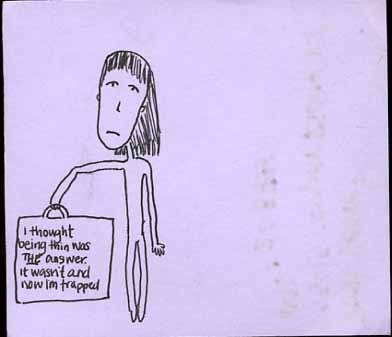 I thought
being thin was
THE answer.
it wasn't and
now Im trapped